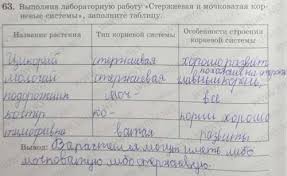 63. Выполняя лабораторную работу «Стержневая и мочковатая кор-
невые системы», заполните таблицу.
Название растения Тип корневой системы Особенности строения корневой системы
Цикорий стержневая хорошо развит
молочай стержневая главный корень,
подорожник моч- все
костур ко- корни хорошо
тимофеевка ватая развиты
Вывод: В растения могут иметь либо
мочковатую либо стержневую.